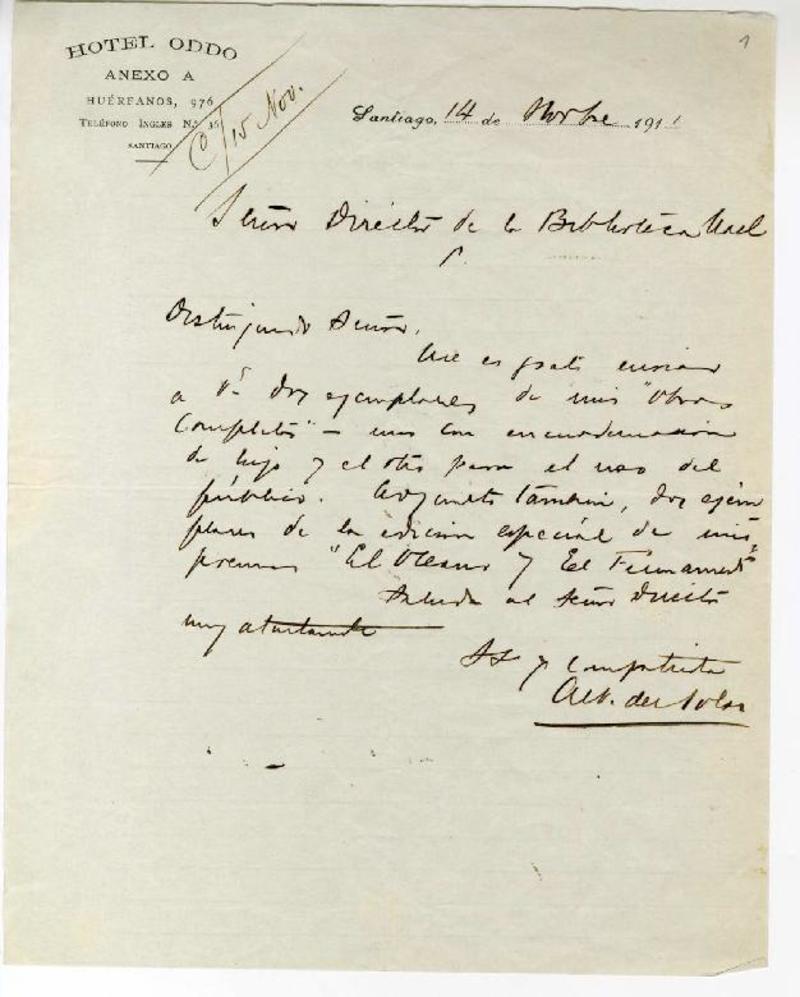 1
HOTEL ODDO
ANEXO A
HUÉRFANOS, 976
TELÉFONO INGLES N.º
SANTIAGO
C/ 15 Nov.
Santiago, 14 de Novbre 1911
Señor Director de la Biblioteca Nacl
P.
Distinguido Señor,
Me es grato enviar
a Vd. dos ejemplares de mis "Obras
Completas" – uno con encuadernación
de lujo y el otro para el uso del
público. Adjunto también, dos ejem
plares de la edición especial de mis
poemas "El Oceano y El Firmamento"
Saluda al Señor Director
muy atentamente
SS y compatriota
Alb. del Solar